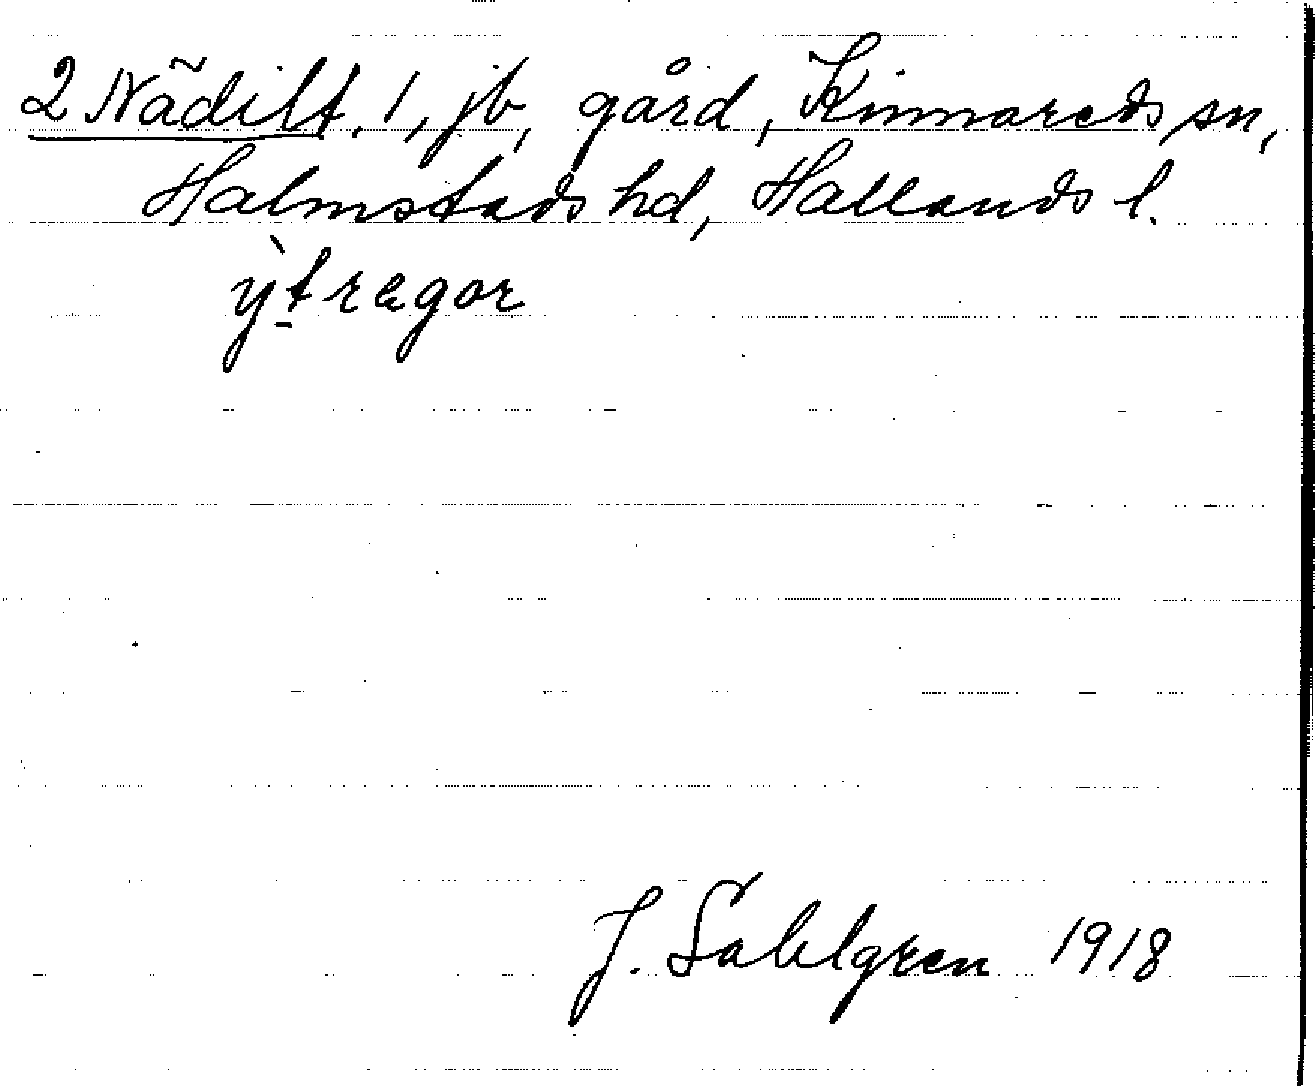 2 Nädilt. 1, jb, gård, Kinnareds sn,
Halmstads hd, Hallands l.
ỳtregor
J. Sahlgren 1918